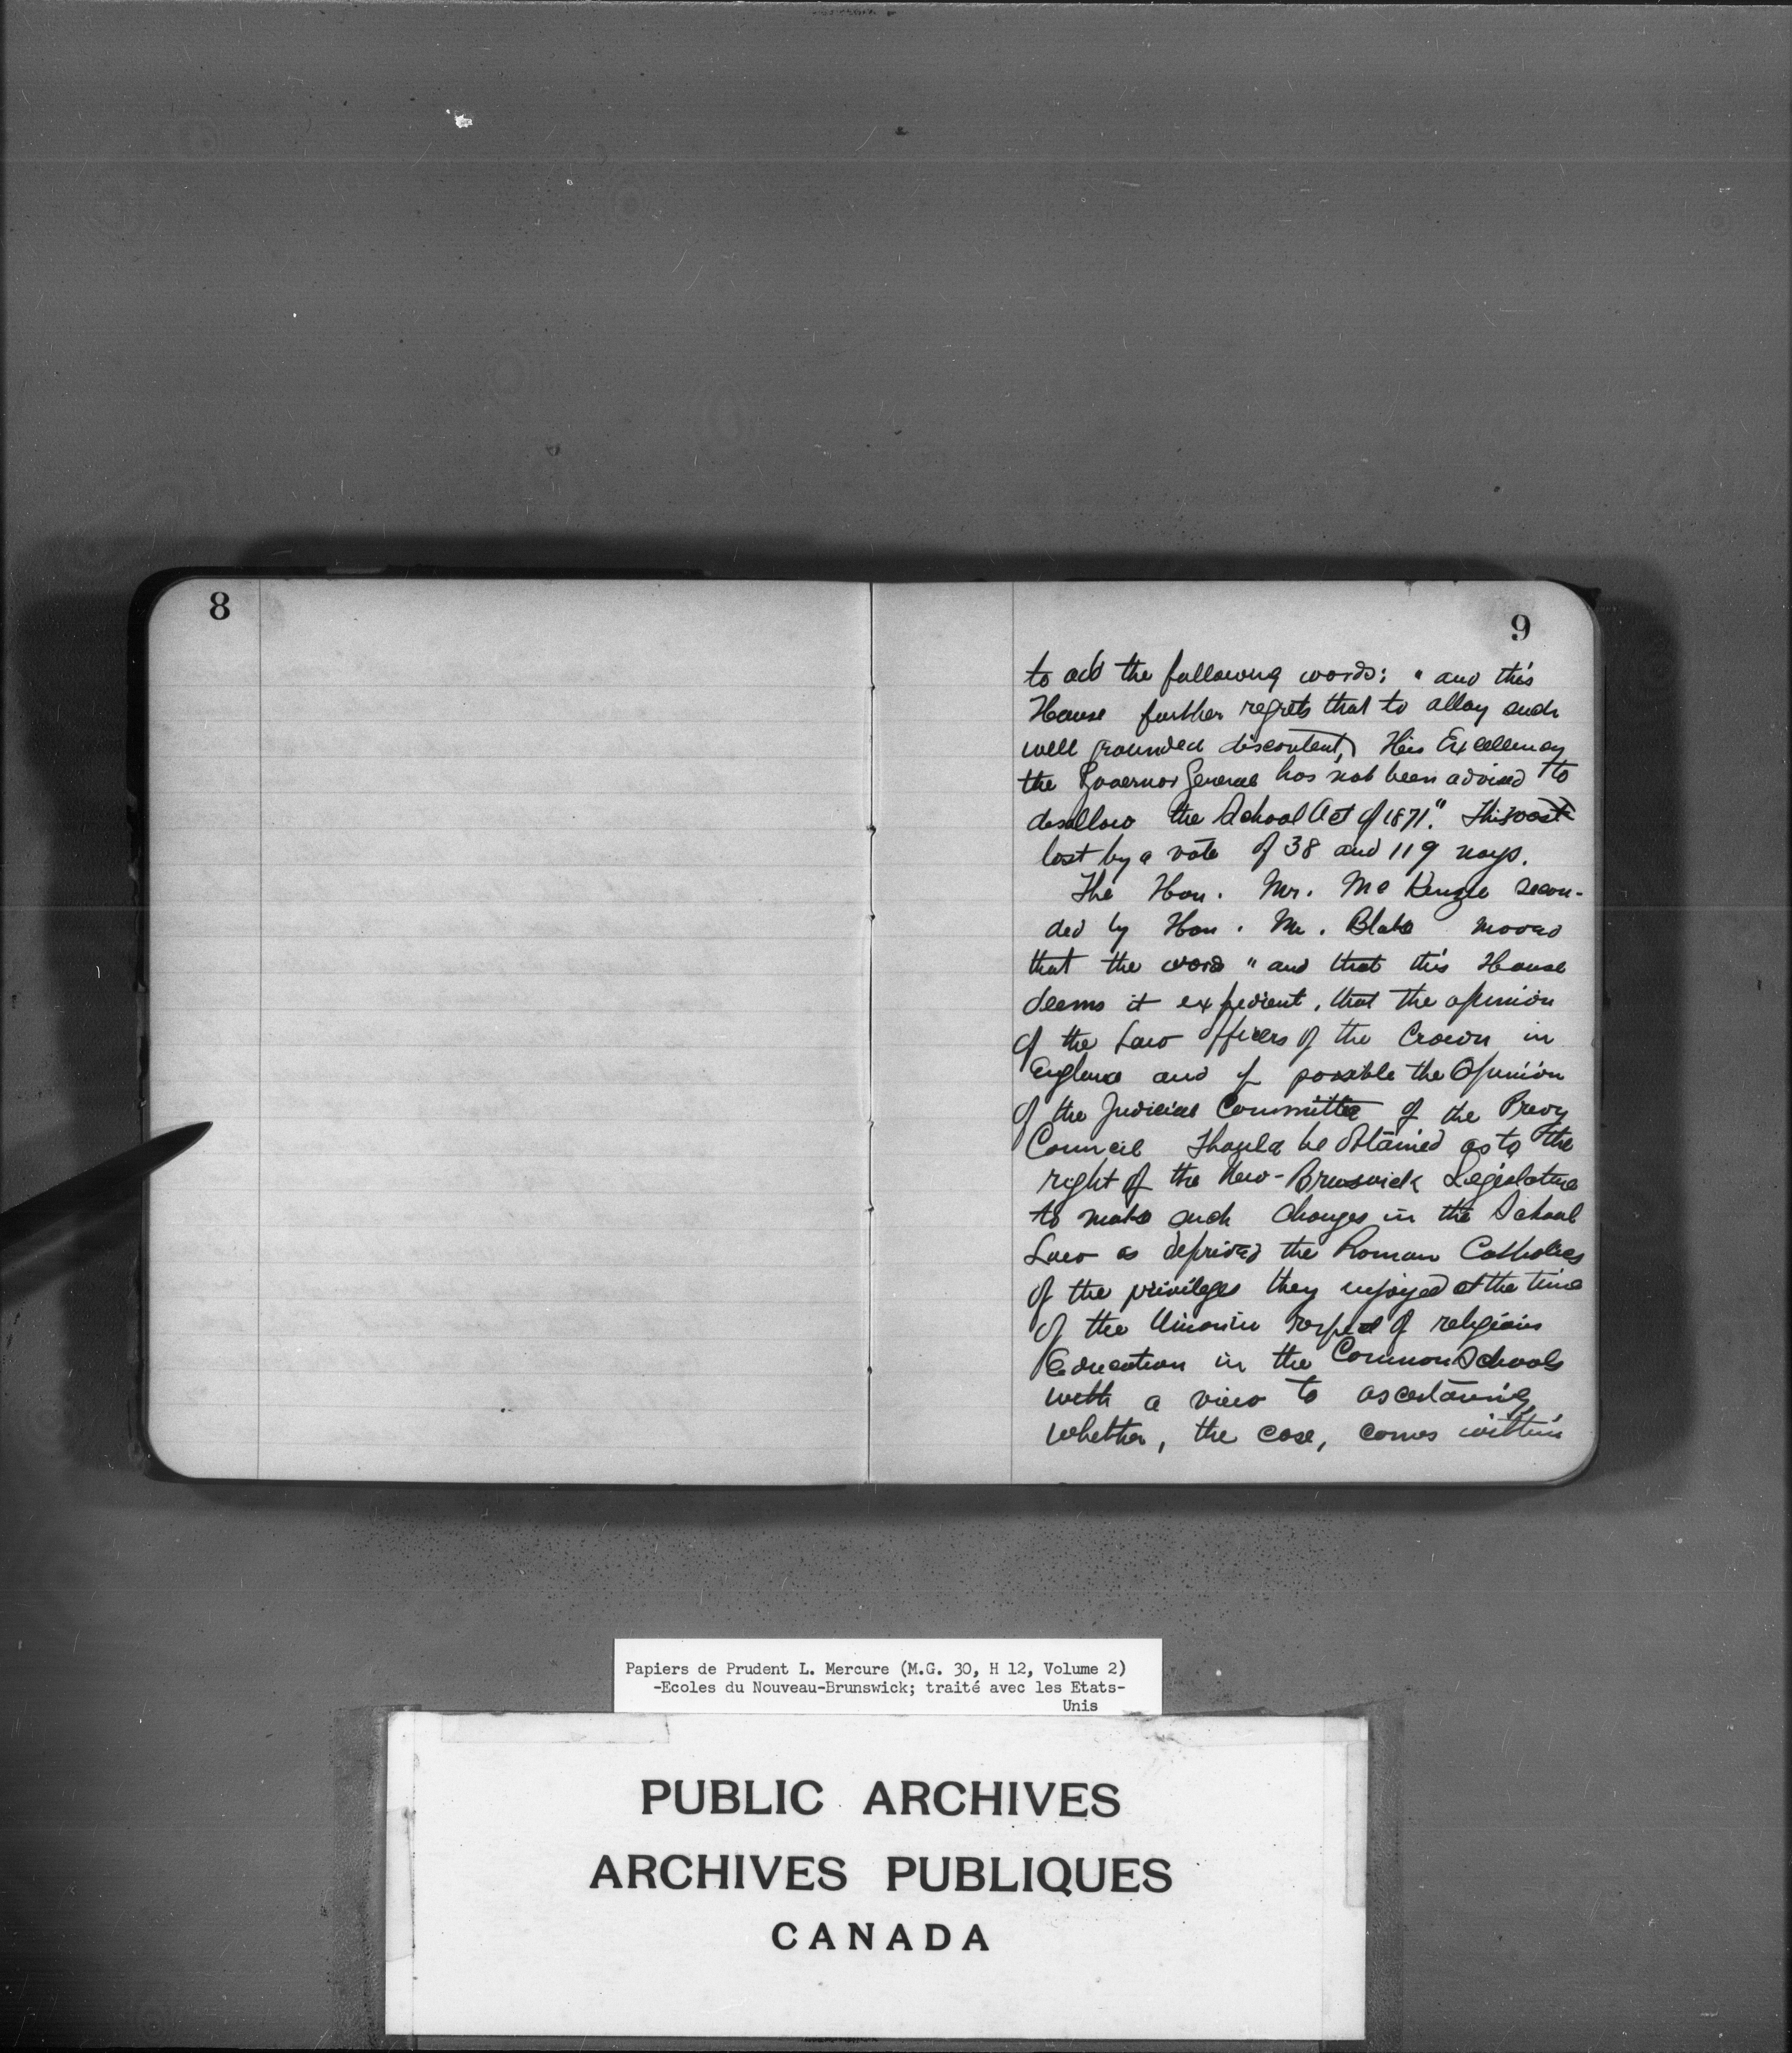 8
9
to add the following words: " and this
House further regrets that to allay such
well grounded discontent, His Excellency
the Governor General has not been advised to
disallow the School Act of 1871." This
lost by a vote of 38 and 119 nays.
The Hon. Mr. McKenzie secon-
ded by Hon. Mr. Blake moved
that the word " and that this House
deems it expedient, that the opinion
of the Law Officers of the Crown in
England and if possible the Opinion
of the Judicial Committee of the Privy
Council Should be obtained as to the
right of the New-Brunswick Legislature
to make such changes in the School
Law as deprived the Roman Catholics
of the privileges they enjoyed at the time
of the Union in respect of religious
Education in the Common Schools
with a view to ascertaining
whether, the case, comes within
Papiers de Prudent L. Mercure (M.G. 30, H 12, Volume 2)
-Ecoles du Nouveau-Brunswick; traité avec les Etats-
Unis
PUBLIC ARCHIVES
ARCHIVES PUBLIQUES
CANADA